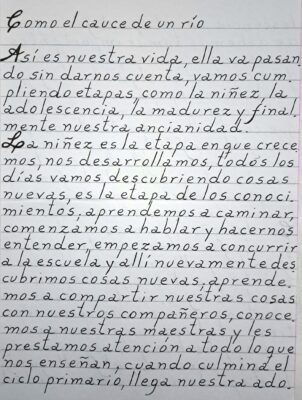 Como el cauce de un río
Así es nuestra vida, ella va pasan
do sin darnos cuenta, vamos cum.
pliendo etapas, como la niñez, la
adolescencia, la madurez y final.
mente nuestra ancianidad.
La niñez es la etapa en que crece
mos, nos desarrollamos, todos los
días vamos descubriendo cosas
nuevas, es la etapa de los conoci.
mientos, aprendemos a caminar,
comenzamos a hablar y hacernos
entender, empezamos a concurrir
a la escuela y allí nuevamente des
cubrimos cosas nuevas, aprende.
mos a compartir nuestras cosas
con nuestros compañeros, conoce.
mos a nuestras maestras y les
prestamos atención a todo lo que
nos enseñan, cuando culmina el
ciclo primario, llega nuestra ado.